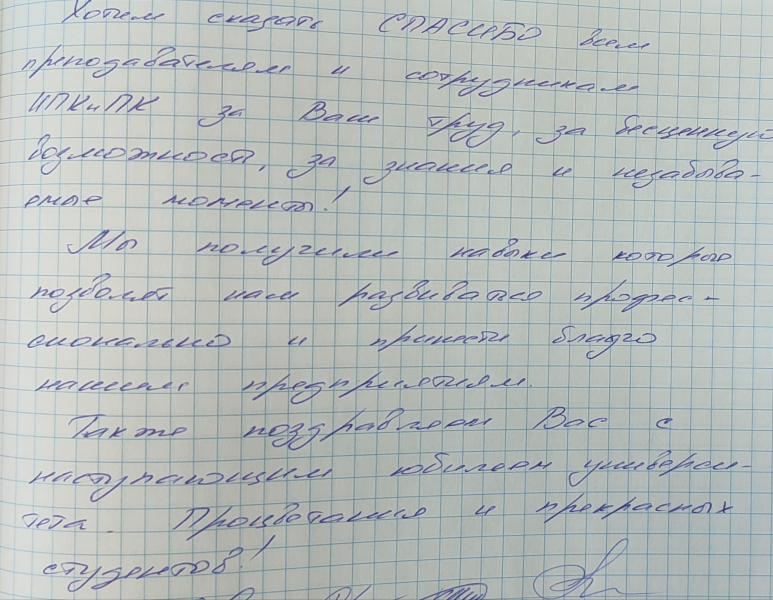 Хотим сказать СПАСИБО всем
преподавателям и сотрудникам
ИПКиПК за Ваш труд, за бесценную
возможность, за знания и незабыва-
емые моменты!
Мы получили навыки которые
позволят нам развиваться профес-
сионально и принести благо
нашим предприятиям.
Также поздравляем Вас с
наступающим юбилеем универси-
тета. Процветания и прекрасных
студентов!